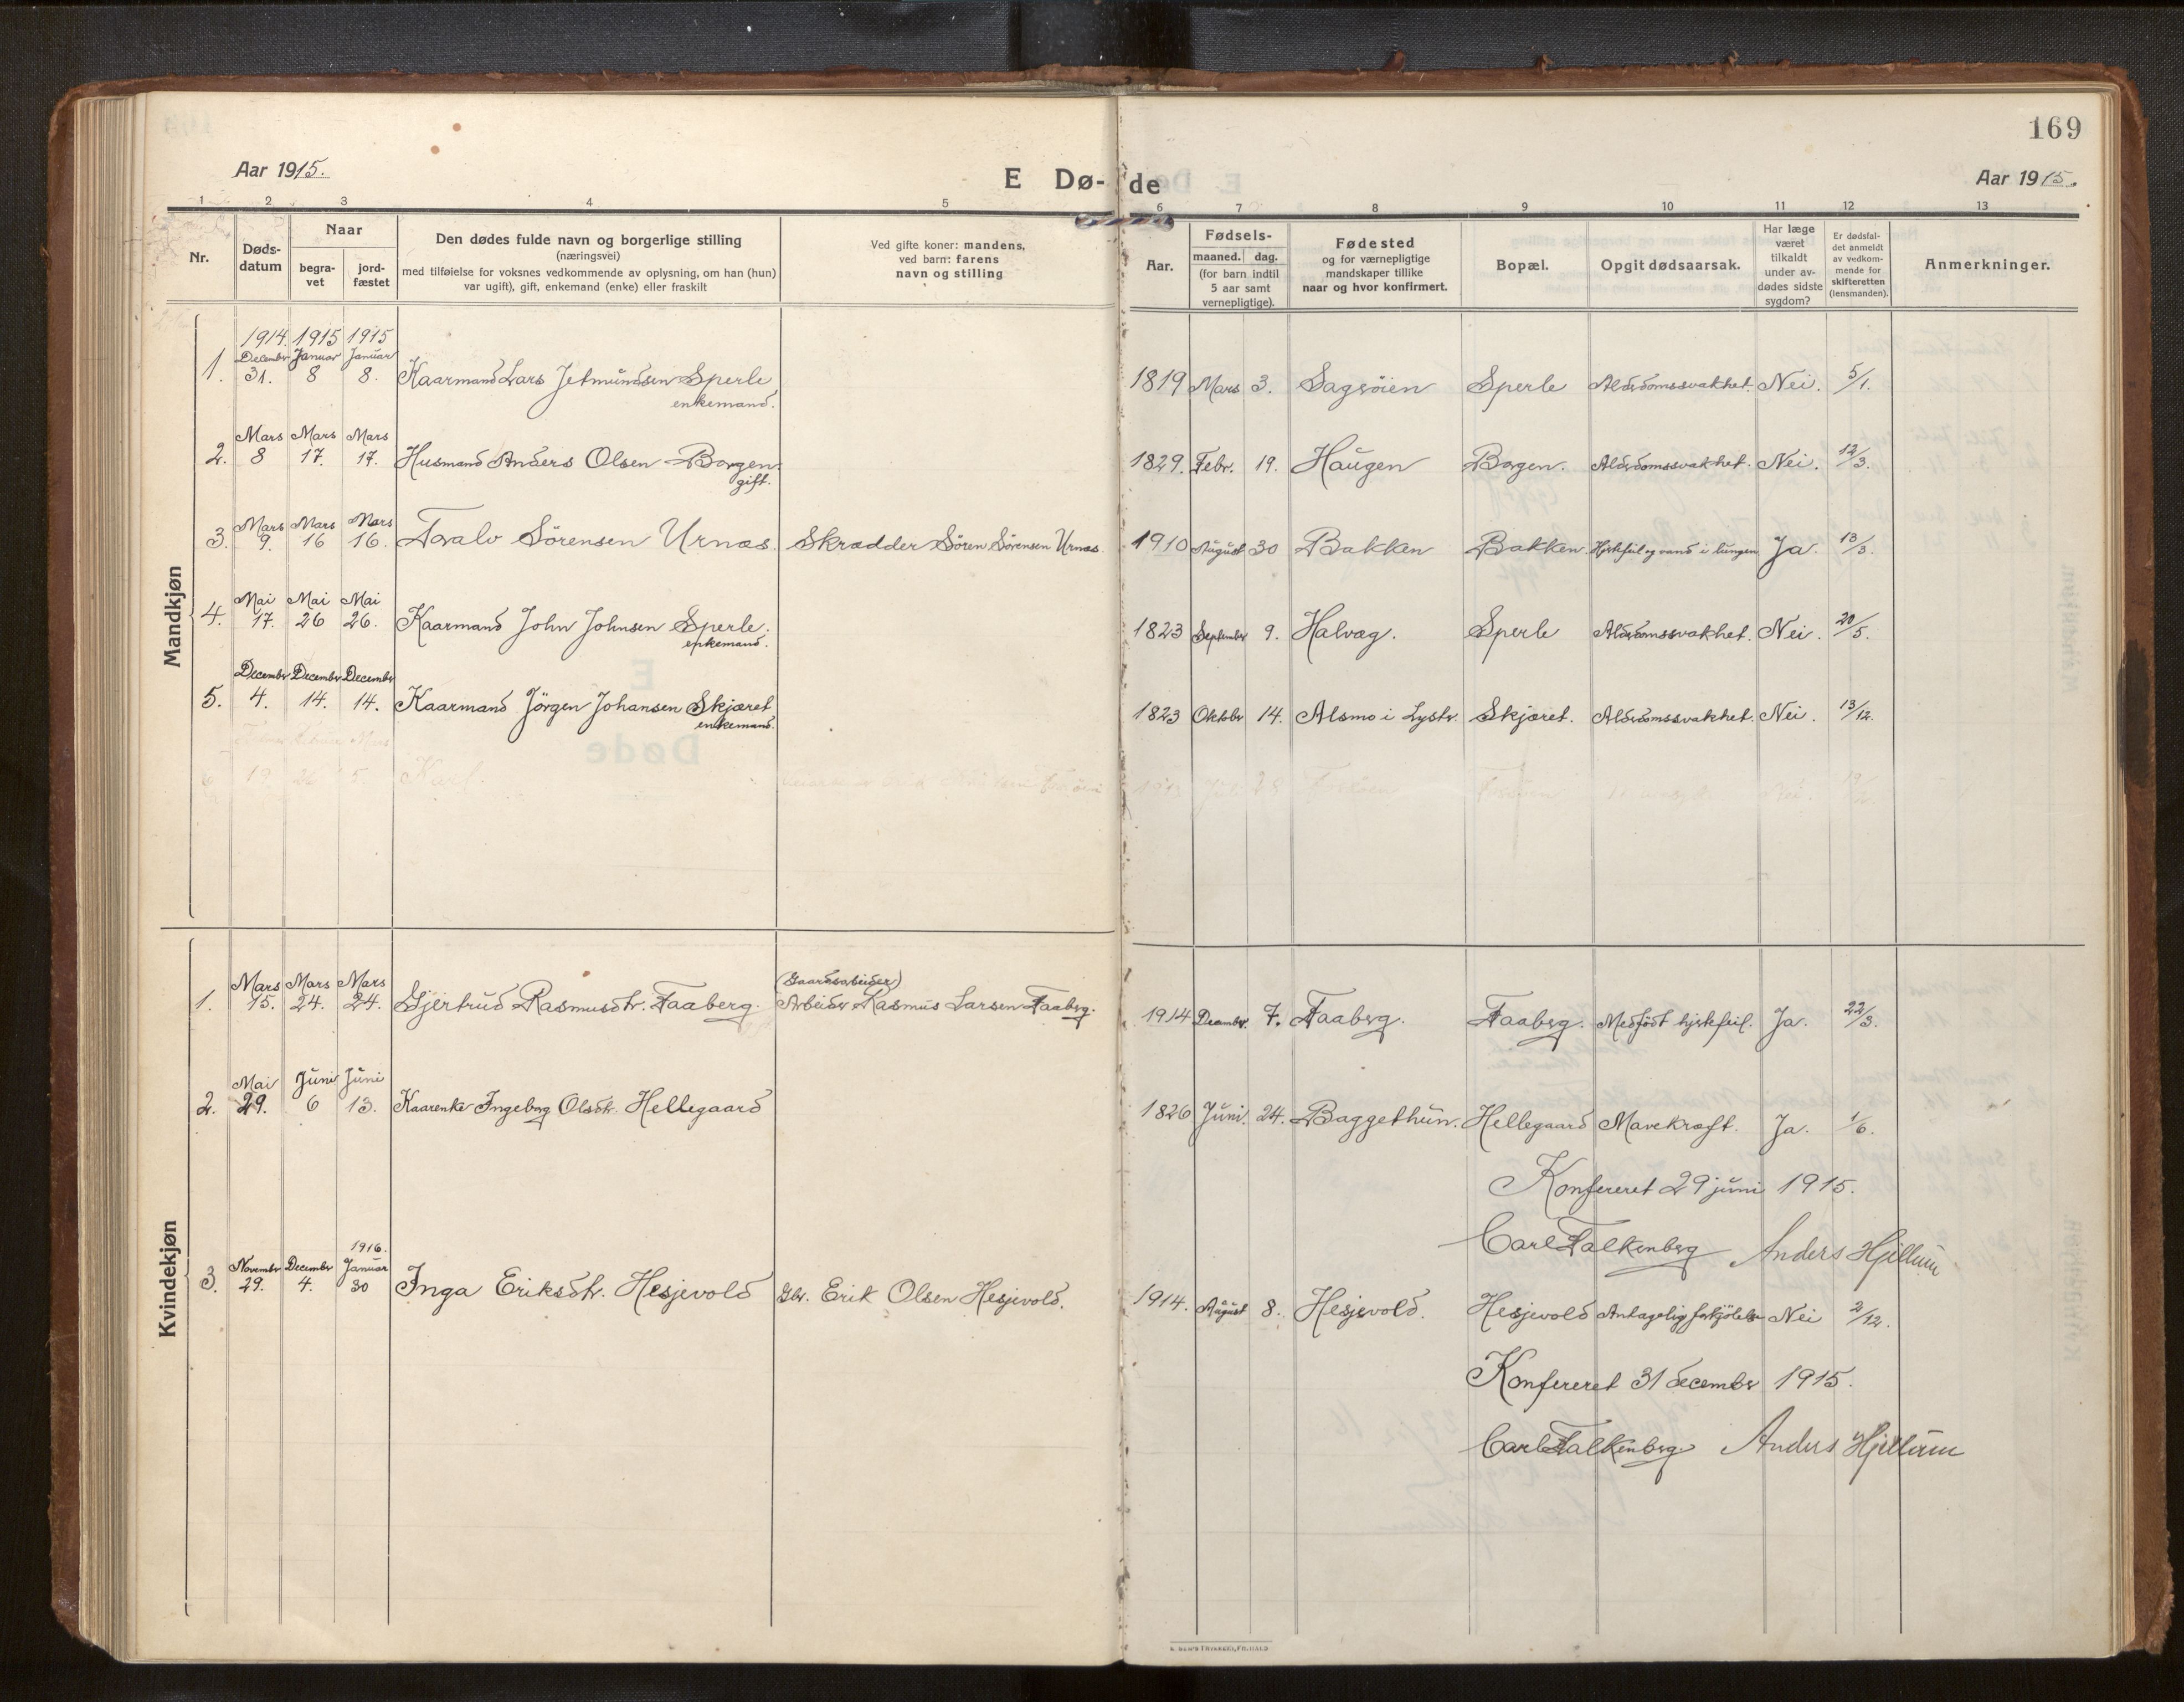 169
Aar 1915.
E Dø- de
Aar 1915.
1 2 3 4 5 6 7 8 9 10 11 12 13
Nr.
Døds-
datum
Naar
begra-
vet
jord-
fæstet
Den dødes fulde navn og borgerlige stilling
(næringsvei)
med tilføielse for voksnes vedkommende av oplysning, om han (hun)
var ugift), gift, enkemand (enke) eller fraskilt
Ved gifte koner: mandens,
ved barn: farens
navn og stilling
Aar.
Fødsels-
maaned. dag.
(for barn indtil
5 aar samt
vernepligtige).
Fødested
og for værnepligtige
mandskaper tillike
naar og hvor konfirmert.
Bopæl.
Opgit dødsaarsak.
Har læge
været
tilkaldt
under av-
dødes sidste
sygdom?
Er dødsfal-
det anmeldt
av vedkom-
mende for
skifteretten
(lensmanden).
Anmerkninger.
Mandkjøn
1914. 1915 1915
December Januar Januar
1. 31. 8 8. Kaarmand Lars Jetmundsen Sperle 1819 Mars 3. Sagsöien Sperle Alderdomssvakhet. Nei. 5/1.
enkemand.
Mars Mars Mars
2. 8 17. 17. Husmand Anders Olsen Borgen 1829. Febr. 19. Haugen Borgen. Alderdomssvakhet. Nei. 12/3.
gift.
Mars Mars Mars
3. 9. 16 16. Toralv Sörensen Urnæs. Skrædder Sören Sörensen Urnæs. 1910 August 30 Bakken Bakken. Hjertefeil og vand i lungen Ja. 13/3.
Mai Mai Mai
4. 17. 26 26. Kaarmand John Johnsen Sperle. 1823 September 9. Halvæg. Sperle Alderdomssvakhet. Nei. 20/5.
enkemand.
December December December
5. 4. 14. 14. Kaarmand Jörgen Johansen Skjæret 1823 Oktober 14. Alsmo i Lyster. Skjæret. Alderdomssvakhet. Nei. 13/12.
enkemand.
6 19 5. Karl
Kvindekjøn
Mars Mars Mars (Gaardsarbeider)
1. 15. 24. 24. Gjertrud Rasmusdtr. Faaberg. Arbeider Rasmus Larsen Faaberg. 1914 December. 7. Faaberg. Faaberg. Medfödt hjertefeil. Ja. 22/3.
Mai Juni Juni
2. 29. 6 13. Kaarenke Ingeborg Olsdtr. Hellegaard 1826 Juni. 24. Baggethun. Hellegaard Mavekræft. Ja. 1/6.
Konfereret 29 juni 1915.
Carl Falkenberg Anders Hjellum
1916.
November December Januar
3. 29. 4. 30 Inga Eriksdtr. Hesjevold Gbr. Erik Olsen Hesjevold. 1914. August 8. Hesjevold. Hesjevold Antagelig forkjölelse Nei 2/12.
Konfereret 31 december 1915.
Carl Falkenberg Anders Hjellum